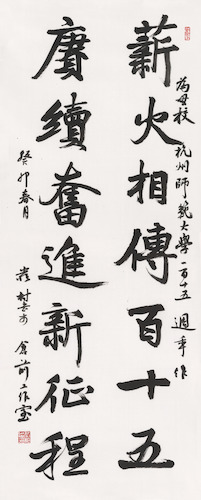 為母校杭州師範大學一百十五週年作
薪火相傳百十五
賡續奮進新征程
癸卯春月 村 倉前工作室